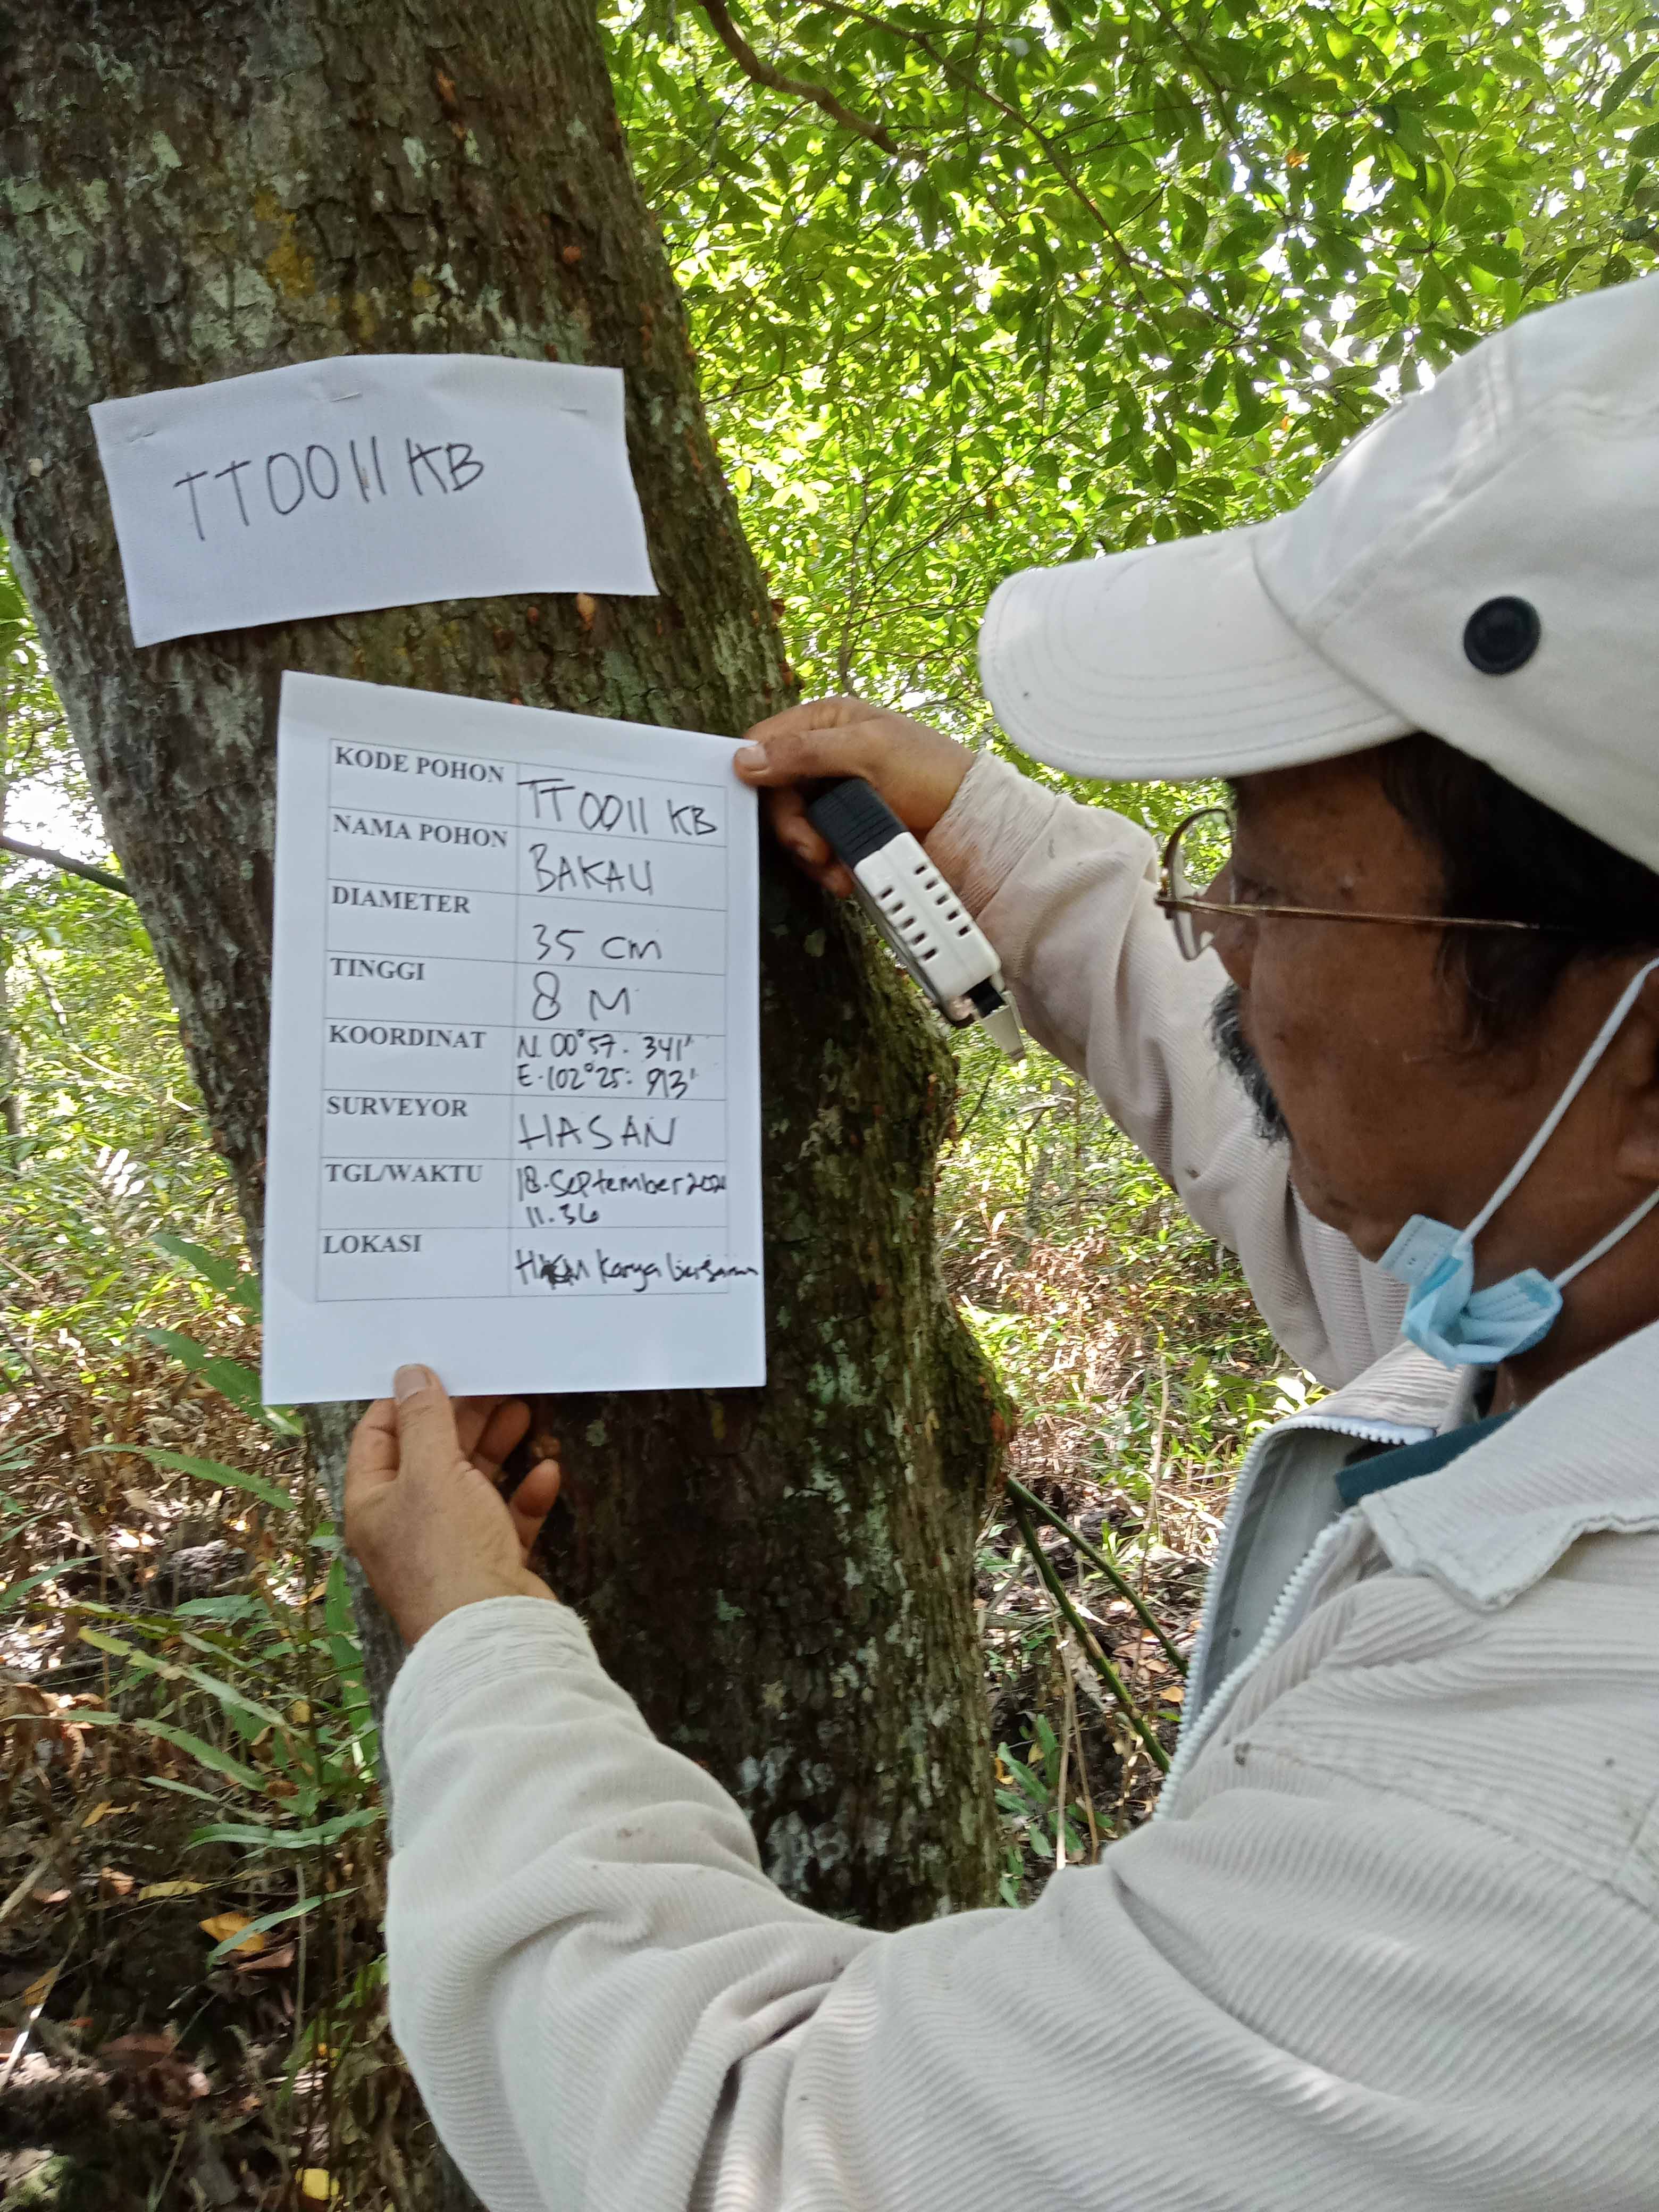 TT0011 KB
KODE POHON TT0011 KB
NAMA POHON BAKAU
DIAMETER 35 cm
TINGGI 8 M
KOORDINAT N. 00°57. 341'
E. 102°25. 913'
SURVEYOR HASAN
TGL/WAKTU 18. September
11.36
LOKASI Karya bersama